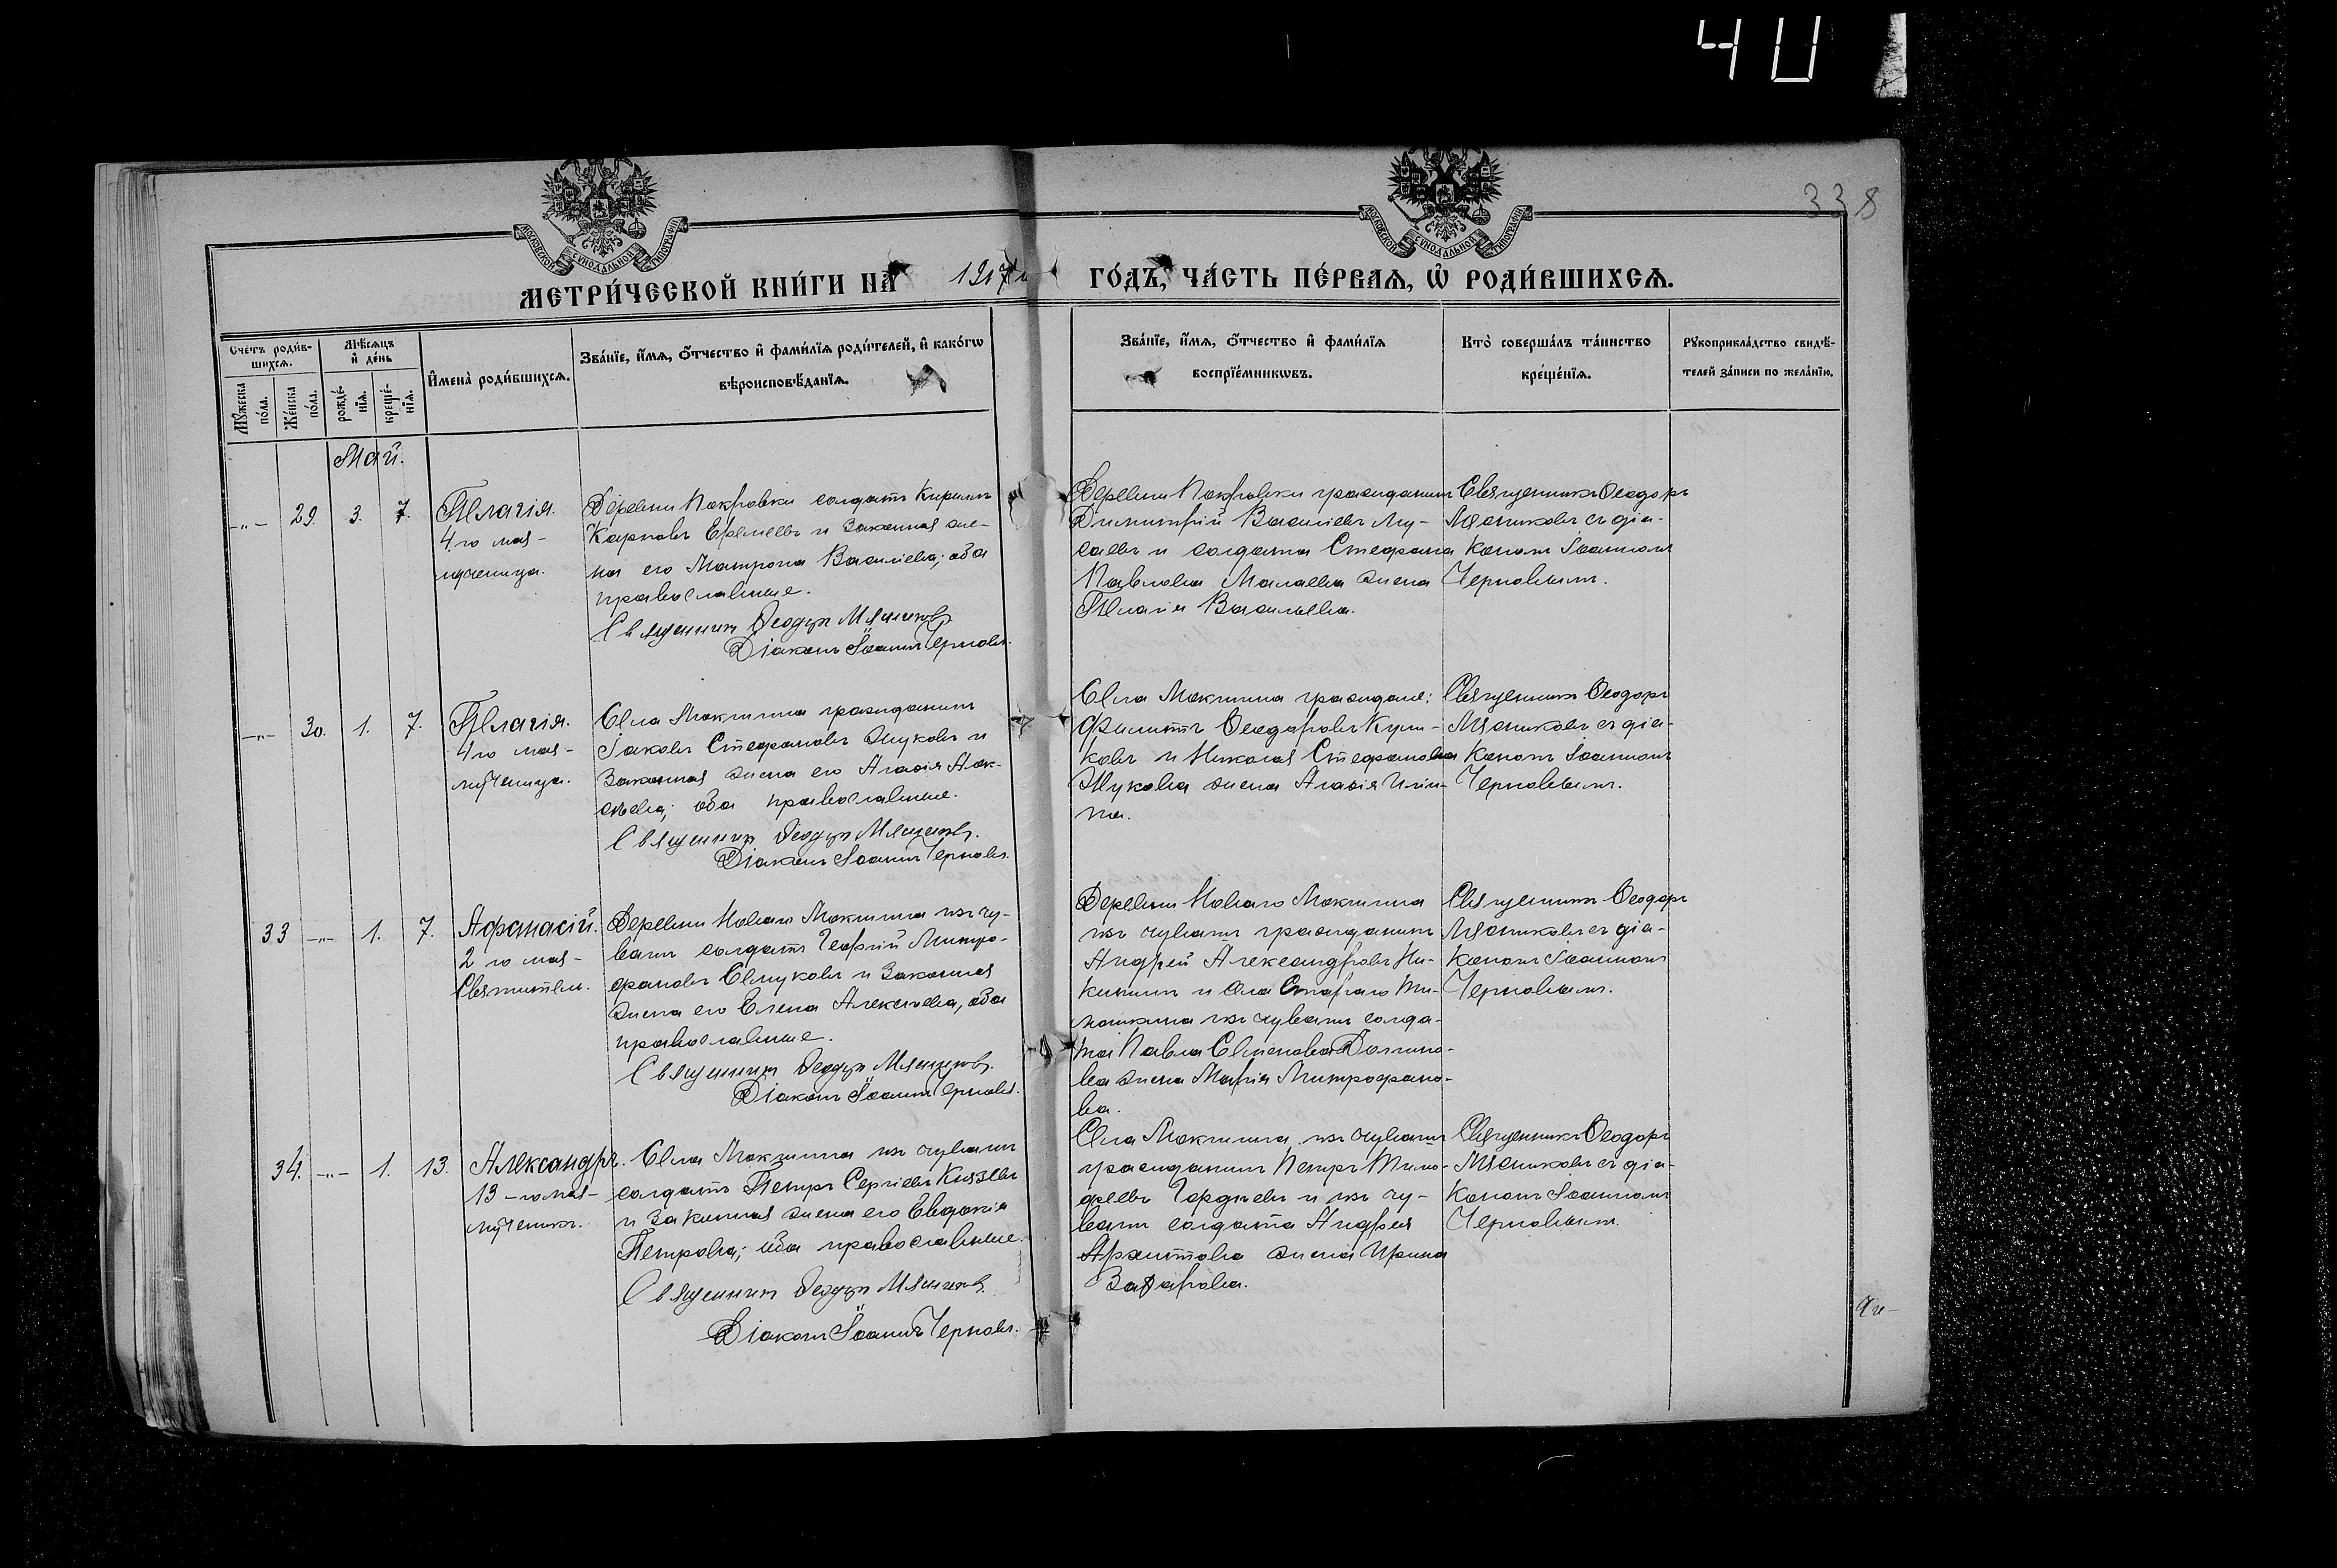 40
338
МОСКОВСКОЙ СУНОДАЛЬНОЙ ТИПОГРАФІИ
МОСКОВСКОЙ СУНОДАЛЬНОЙ ТИПОГРАФІИ
МЕТРИ́ЧЕСКОЙ КНИ́ГИ НА 1917 ГО́ДЪ, ЧА́СТЬ ПЕ́РВАѦ, Ѡ҆ РОДИ́ВШИХСѦ.
Счетъ роди́в-
шихсѧ.
Мꙋжеска
по́ла.
Же́нска
по́ла.
Мѣ́сѧцъ
и҆ де́нь
рожде́-
нїѧ.
креще́-
нїѧ.
И҆мена̀ роди́вшихсѧ.
Зва́нїе, и҆́мѧ, ѻ҆́тчество и҆ фами́лїѧ роди́телей, и҆ како́гѡ
вѣроисповѣ́данїѧ.
Зва́нїе, и҆́мѧ, ѻ҆́тчество и҆ фами́лїѧ
воспрїе́мникѡвъ.
Кто̀ соверша́лъ та́инство
креще́нїѧ.
Рꙋкоприкла́дство свидѣ́-
телей за́писи по жела́нїю.
Май.
-„- 29. 3. 7.
Пелагія.
4 го мая -
мученица.
Деревни Покровки солдатъ Кириллъ
Карповъ Еремеевъ и законная же-
на его Матрона Василіева; оба
православные.
Священникъ Ѳеодоръ Мясниковъ
Діаконъ Іоаннъ Черновъ.
Деревни Покровки гражданинъ
Димитрій Василіевъ
и солдата Стефана
Павлова Малаева жена
Пелагія Васильева.
Священникъ Ѳеодоръ
Мясниковъ съ діа-
кономъ Іоанномъ
Черновымъ.
-„- 30. 1. 7.
Пелагія.
4 го мая -
мученица.
Села Мокшина гражданинъ
Іаковъ Стефановъ Жуковъ и
законная жена его Агаѳія Алек-
сѣева; оба православные.
Священникъ Ѳеодоръ Мясниковъ.
Діаконъ Іоаннъ Черновъ.
Села Мокшина граждане:
Филиппъ Ѳеодоровъ Кули-
ковъ и Николая Стефанова
Жукова жена Агаѳія Ильи-
на.
Священникъ Ѳеодоръ
Мясниковъ съ діа-
кономъ Іоанномъ
Черновымъ.
33 -„- 1. 7.
Афанасій.
2 го мая -
Святитель.
Деревни Новаго Мокшина изъ чу-
вашъ солдатъ Георгій Митро-
фановъ и законная
жена его Елена Алексѣева, оба
православные.
Священникъ Ѳеодоръ Мясниковъ.
Діаконъ Іоаннъ Черновъ.
Деревни Новаго Мокшина
изъ чувашъ гражданинъ
Андрей Александровъ Ни-
китинъ и села Стараго
изъ чувашъ солда-
та Павла Семенова
жена Марія Митрофано-
ва.
Священникъ Ѳеодоръ
Мясниковъ съ діа-
кономъ Іоанномъ
Черновымъ.
34. -„- 1. 13.
Александръ.
13 - го мая -
мученикъ.
Села Мокшина изъ чувашъ
солдатъ Петръ Сергіевъ Князевъ
и законная жена его Евдокія
Петрова; оба православные.
Священникъ Ѳеодоръ Мясниковъ.
Діаконъ Іоаннъ Черновъ.
Села Мокшина изъ чувашъ
гражданинъ Петръ Тимо-
феевъ Гордѣевъ и изъ чу-
вашъ солдата Андрея
Архипова жена Ирина
Захарова.
Священникъ Ѳеодоръ
Мясниковъ съ діа-
кономъ Іоанномъ
Черновымъ.